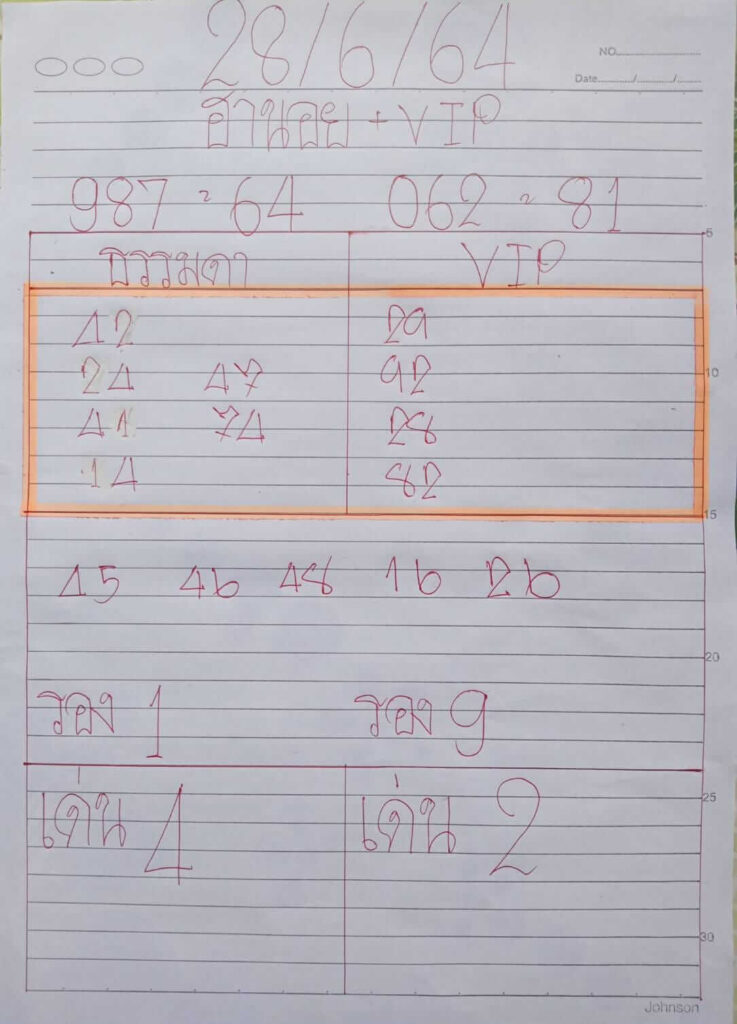 28/6/64
NO.
Date / /
ฮานอย + VIP
987 = 64 062 = 81
5
ธรรมดา VIP
42 29
24 47 92
10
41 74 28
14 82
15
45 46 48 16 26
20
รอง 1 รอง 9
25
เด่น 4 เด่น 2
30
Johnson